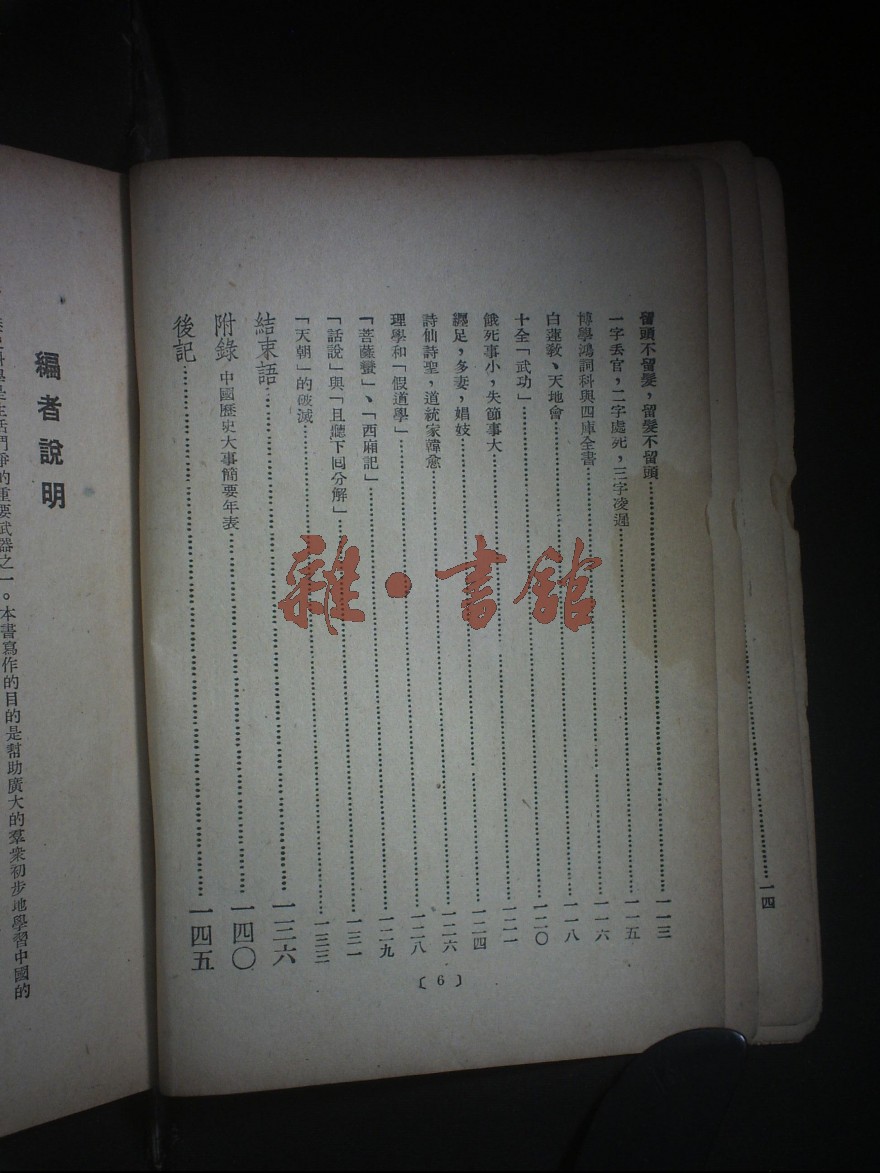 留頭不留髮，留髮不留頭……一一三
一字丟官，二字處死，三字凌遲……一一五
博學鴻詞科與四庫全書……一一六
白蓮教、天地會……一一八
十全「武功」……一二〇
餓死事小，失節事大……一二一
纏足，多妻，娼妓……一二四
詩仙詩聖，道統家韓愈……一二六
理學和「假道學」……一二八
「菩薩蠻」、「西廂記」……一二九
「話說」與「且聽下回分解」……一三一
「天朝」的破滅……一三三
結束語……一三六
附錄 中國歷史大事簡要年表……一四〇
後記……一四五
〔6〕
一四
編者說明
學是生活鬥爭的重要武器之一。本書寫作的目的是幫助廣大的羣衆初步地學習中國的
雜·書館